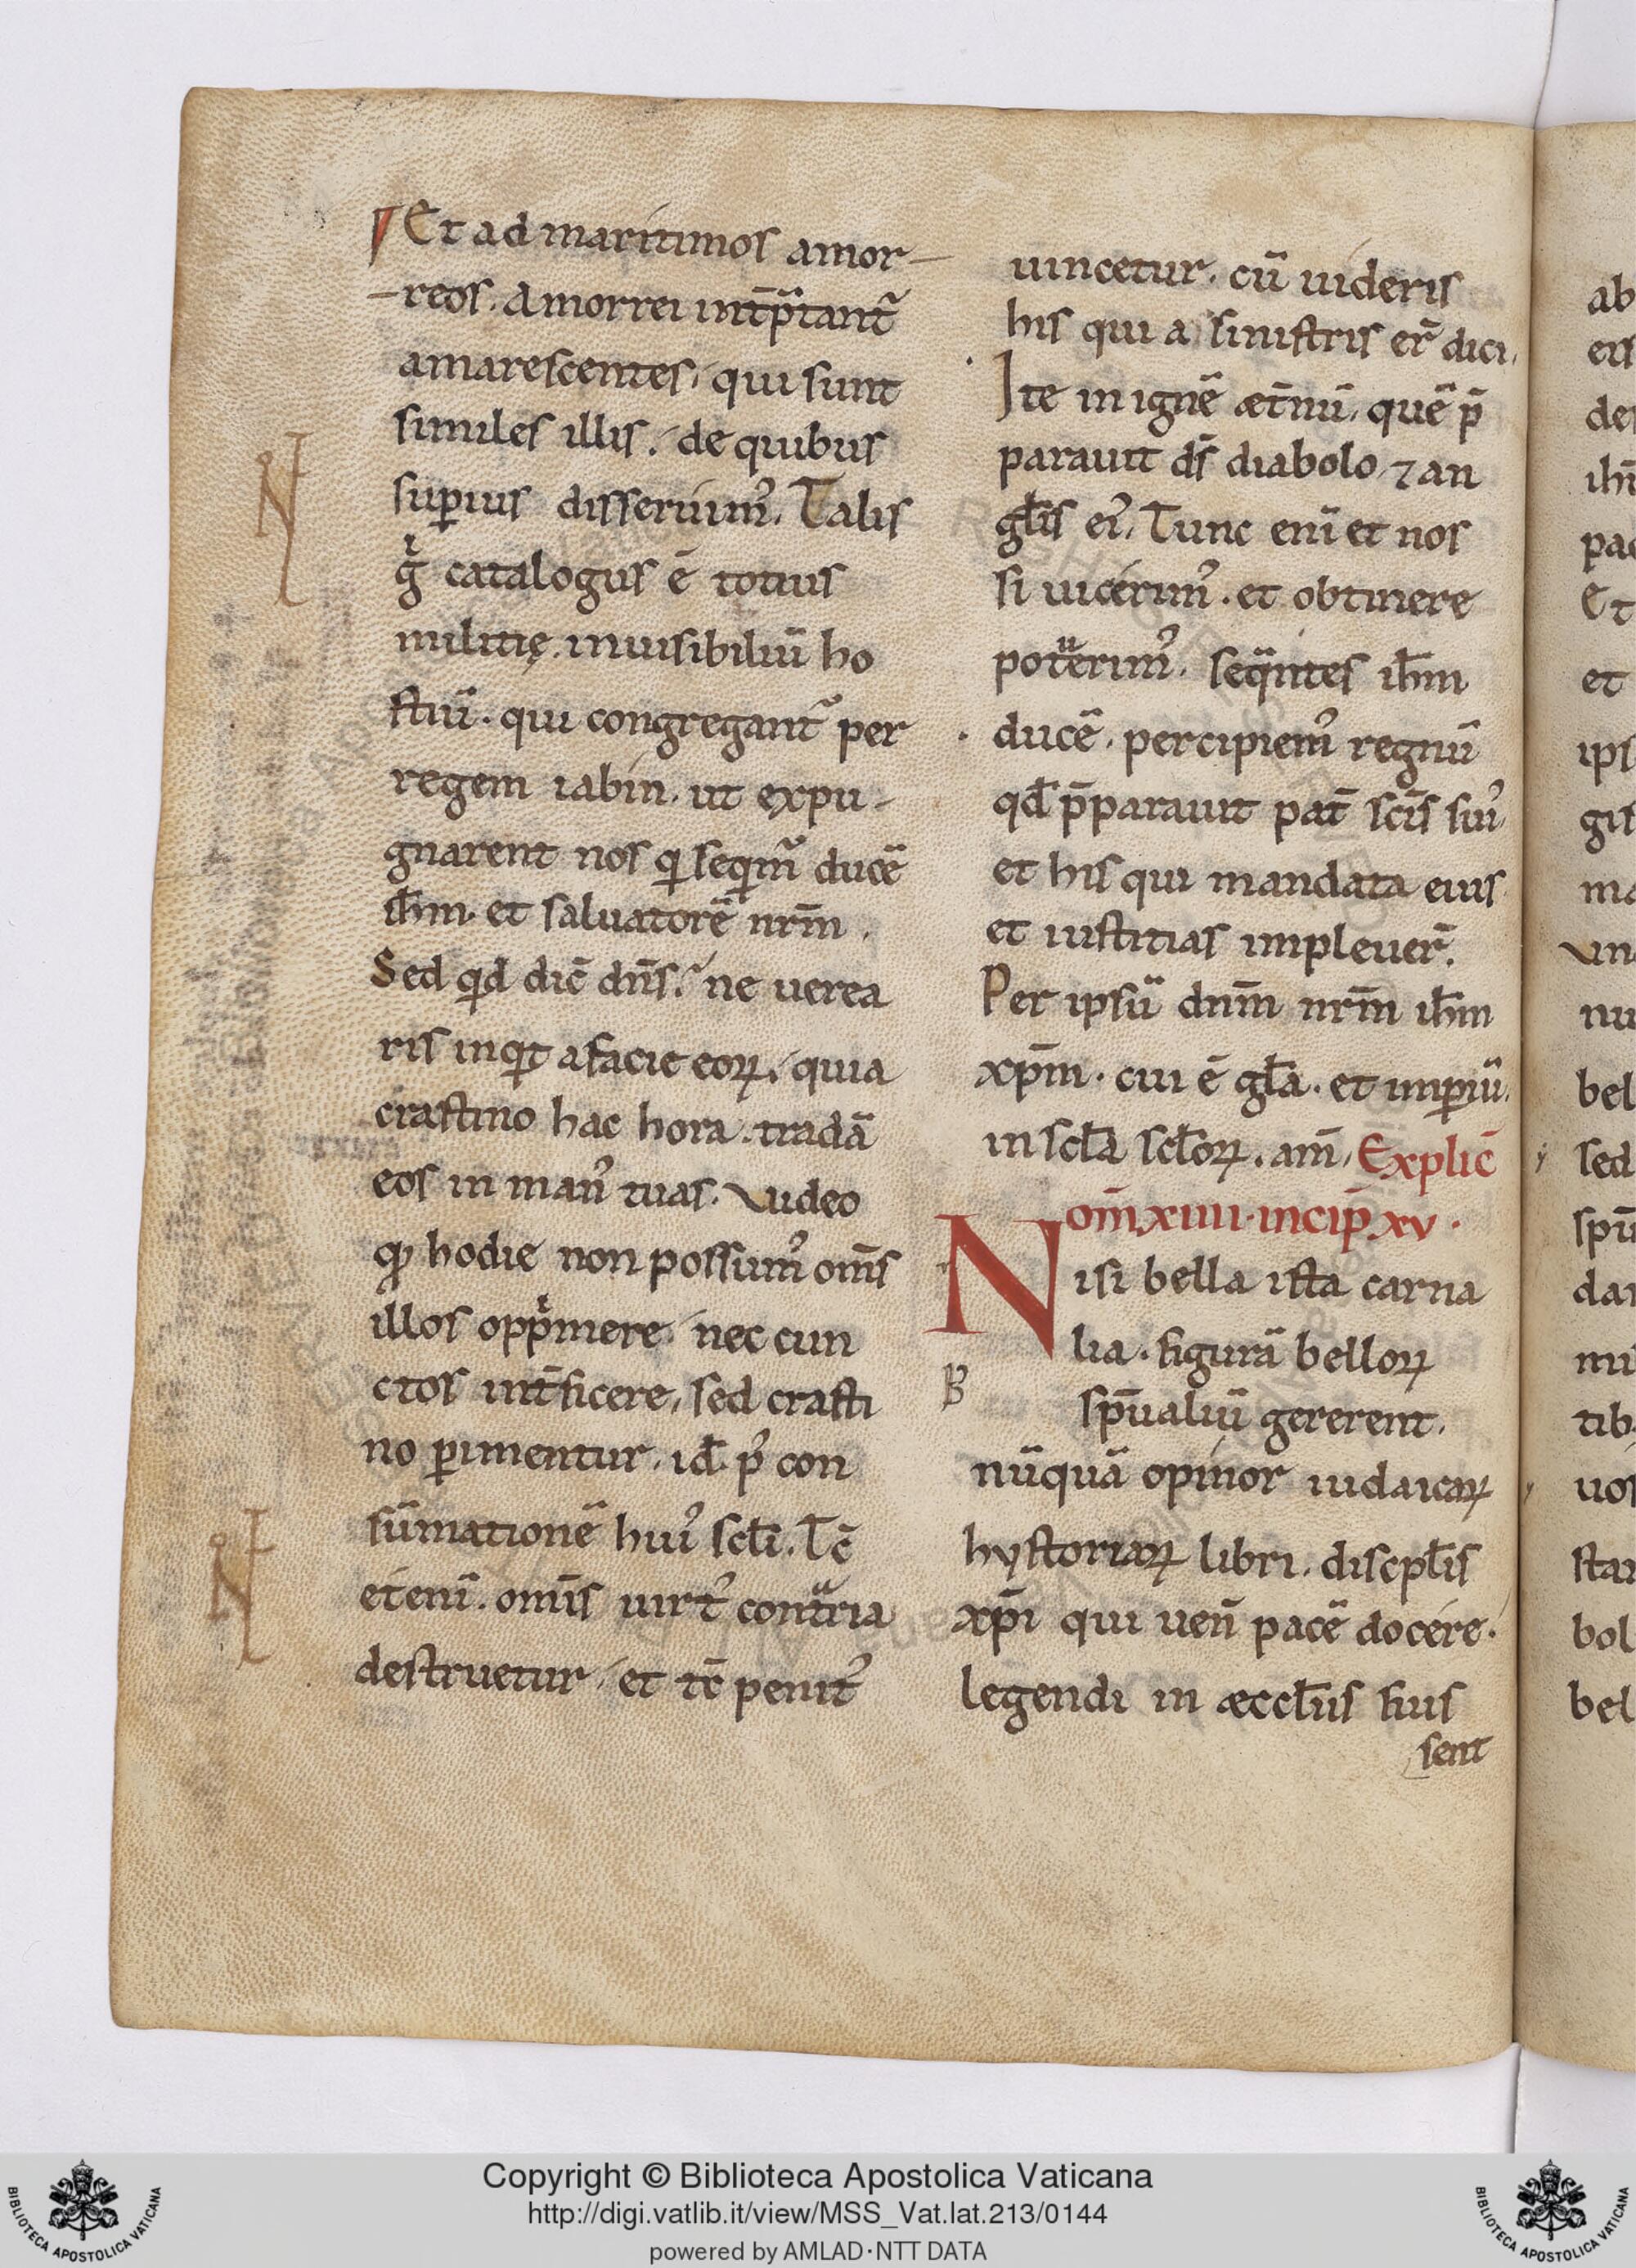 Et ad maritimos amor-
-reos. Amorrei int̄p̄tant᷑
amarescentes, qui sunt
similes illis, de quibus
sup̱ius disseruim᷒. Talis
gͥ catalogus ē totius
militię inuisibiliū ho
stiū. qui congregant᷑ per
regem iabin. ut expu-
gnarent nos q̱ seq̱m᷑ ducē
ih̄m et saluatorē nrm̄.
Sed q̱d dic̄ dn̄s. ne uerea
ris inq̱t a facie eoꝝ, quia
crastino hac hora tradā
eos in man᷒ tuas. Video
ꝙ hodie non possum᷒ om̄s
illos oppͥmere, nec cun
ctos int̄ficere, sed crasti
no ꝑimentur. id̄ p᷒ con
sūmationē hui᷒ scl̄i. Tc̄
etenī. omīs uirt᷒ contͣria
destruetur, et tc̄ penit᷒
uincetur. cū uideris
his qui a sinistris er̄ dici.
Ite in ignē æt̄nū, quē p̄
parauit ds̄ diabolo ⁊ an
gl̄is ei᷒. Tunc enī et nos
si uicerim᷒. et obtinere
potuerim᷒. seqͣntes ih̄m
ducē. percipiem᷒ regnū
qd̄ p̄parauit pat̄ sc̄is sui᷒
et his qui mandata eius
et iustitias impleuer̄.
Per ipsū dnm̄ nrm̄ ih̄m
xp̄m. cui ē gl̄a. et imꝑiū.
in scl̄a scl̄oꝝ. am̄. Explic̄
om̄ xiiii. incip̄ xv.
Nisi bella ista carna
lia. figurā belloꝝ
sp̄ualiū gererent.
nūquā opinor iudaicaꝝ
hystoriaꝝ libri. discipl̄is
xp̄i qui uen̄ pacē docere.
legendi in æccl̄iis fuis
sent
Copyright © Biblioteca Apostolica Vaticana
http://digi.vatlib.it/view/MSS_Vat.lat.213/0144
powered by AMLAD·NTT DATA
BIBLIOTECA APOSTOLICA VATICANA
BIBLIOTECA APOSTOLICA VATICANA